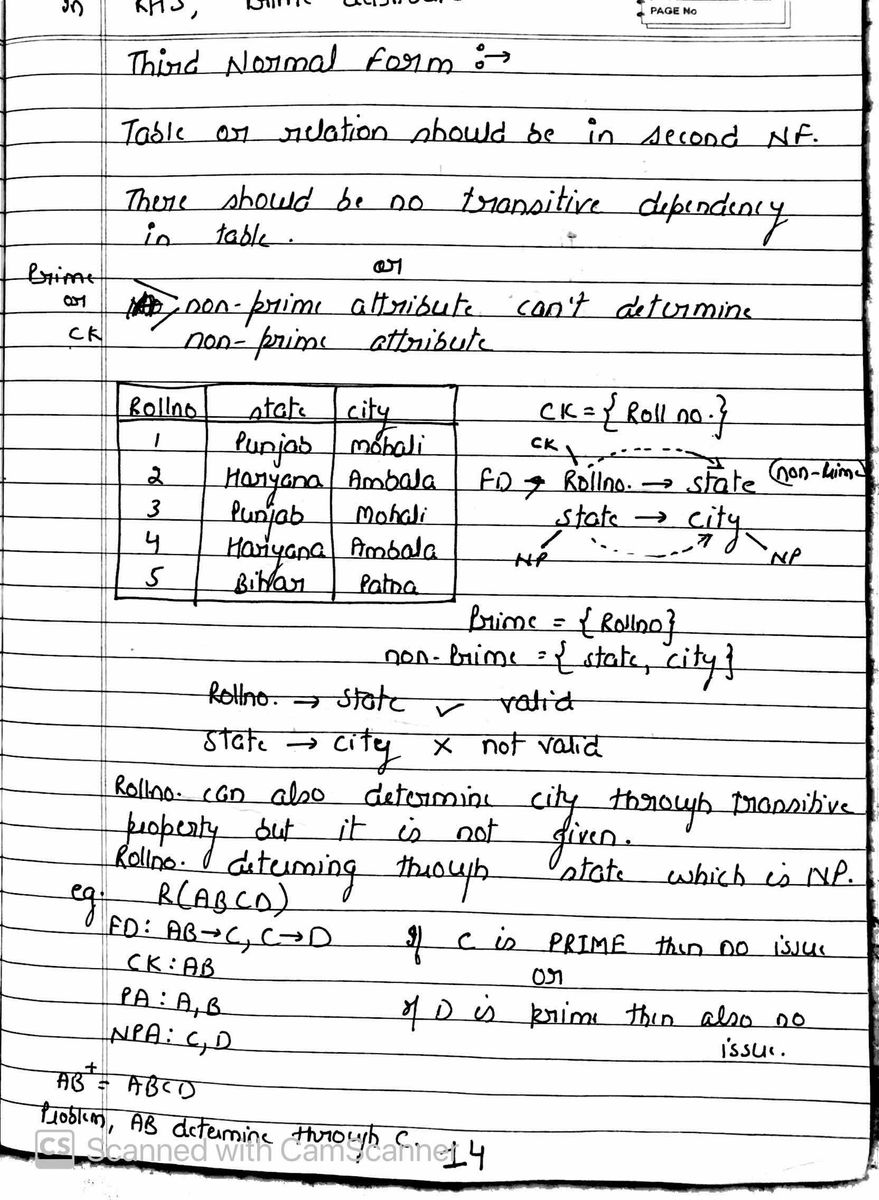 in RHS, prime
PAGE No
Third Normal form :→
Table or relation should be in second NF.
There should be no transitive dependency
in table.
or
Prime
or
CK
non-prime attribute can't determine
non-prime attribute
Rollno state city
1 Punjab mohali
2 Haryana Ambala
3 Punjab Mohali
4 Hariyana Ambala
5 Bihar Patna
CK = { Roll no. }
CK
FD → Rollno. → state (non-prime
state → city
NP NP
Prime = { Rollno }
non-Prime = { state, city }
Rollno. → state ✓ valid
state → city × not valid
Rollno. can also determine city through transitive
property but it is not given.
Rollno. determing through state which is NP.
eg. R(ABCD)
FD: AB→C, C→D If C is PRIME then no issue
CK: AB or
PA: A, B if D is prime then also no
NPA: C, D issue.
AB+ = ABCD
Problem, AB determine through C.
CS Scanned with CamScanner
14